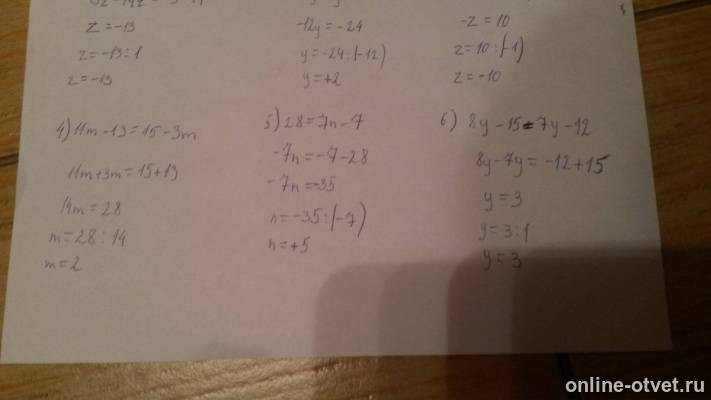 z = -13
z = -13 : 1
z = -13
-12y = -24
y = -24 : (-12)
y = +2
-z = 10
z = 10 : (-1)
z = -10
4) 11m - 13 = 15 - 3m
11m + 3m = 15 + 13
14m = 28
m = 28 : 14
m = 2
5) 28 = 7n - 7
-7n = -7 - 28
-7n = -35
n = -35 : (-7)
n = +5
6) 8y - 15 = 7y - 12
8y - 7y = -12 + 15
y = 3
y = 3 : 1
y = 3
online-otvet.ru